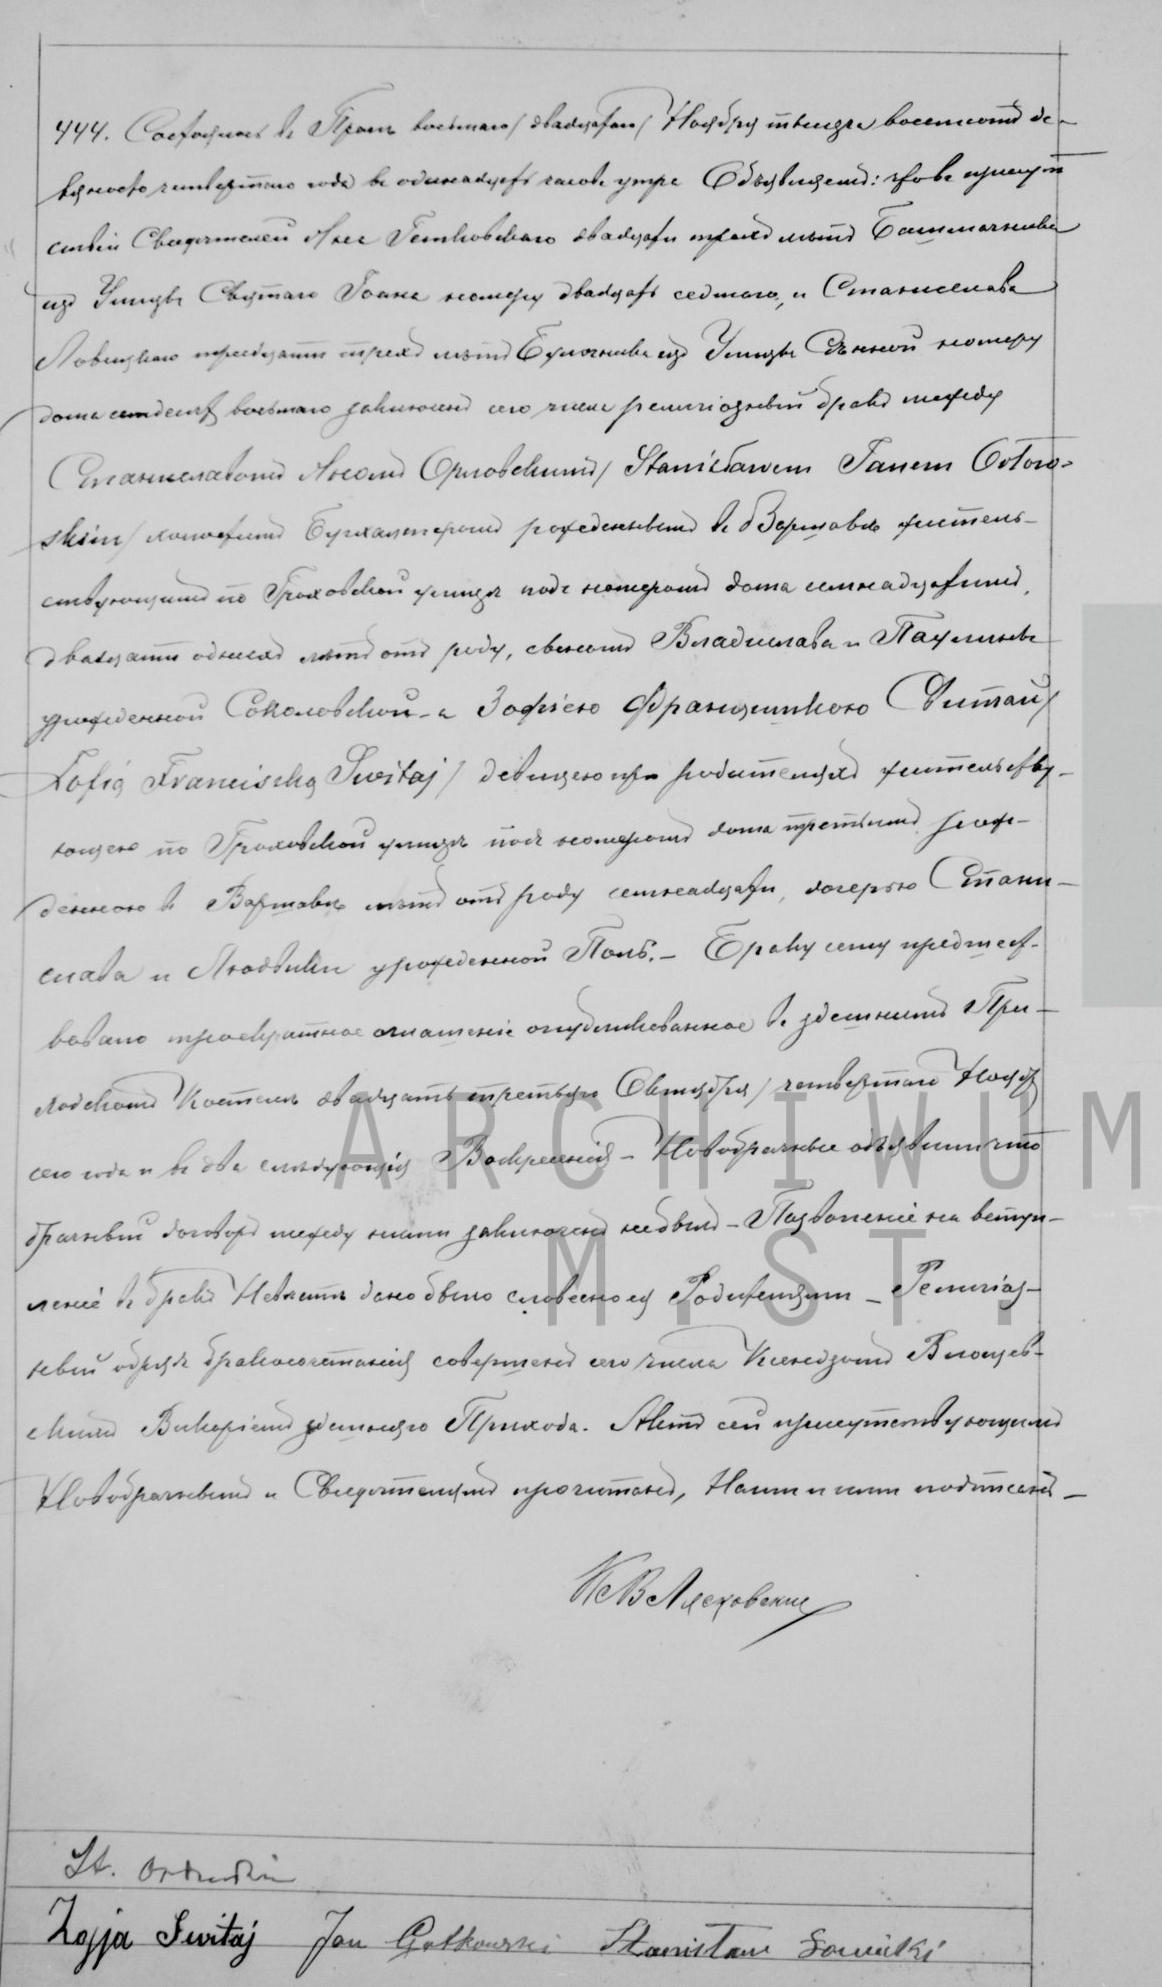 444. Состоялось въ Прагѣ восьмаго / двадцатаго / Ноября тысяча восемсотъ де-
вяносто четвертаго года въ одинадцать часовъ утра Объявляемъ: что въ присут
ствіи Свидѣтелей Яна Готковскаго двадцати трехъ лѣтъ Башмачника
изъ Улицы Святаго Іоанна номеру двадцать седмаго, и Станислава
Ловицкаго тридцати трехъ лѣтъ Булочника изъ Улицы Сѣнной номеру
дома восьмаго заключенъ сего числа религіозный бракъ между
Станиславомъ Яномъ Орловскимъ / Stanisławem Janem Orłow-
skim / холостымъ Бухгалтеромъ рожденнымъ въ Варшавѣ житель-
ствующимъ по Гроховской улицѣ подъ номеромъ дома семнадцатымъ,
двадцати одного лѣтъ отъ роду, сыномъ Владислава и Паулины
урожденной Соколовской - а Зофіею Францишкою Свитай /
Zofią Franciszką Switaj / дѣвицею при родителяхъ жительству-
ющею по Гроховской улицѣ подъ номеромъ дома третьимъ рож-
денною въ Варшавѣ лѣтъ отъ роду семнадцати, дочерью Стани-
слава и Людвики урожденной Поль. - Браку сему предшест-
вовало троекратное оглашеніе опубликованное въ здѣшнемъ При-
ходскомъ Костелѣ двадцать третьяго Октября / четвертаго Ноября
сего года и въ два слѣдующія Воскресенія - Новобрачные объявили что
брачный договоръ между ними заключенъ небылъ - Позволеніе на вступ-
леніе въ бракъ Невѣсты дано было словесно ея Родителями - Религіоз-
ный обрядъ бракосочетанія совершенъ сего числа Ксендзомъ
Викаріемъ здѣшняго Прихода. Актъ сей присутствующимъ
Новобрачнымъ и Свидѣтелямъ прочитанъ, Нами и ими подписанъ -
КсВЛясковскии
St. Orłowski
Zofja Switaj Jan Gotkowski Stanisław Łowicki
ARCHIWUM
M. ST.